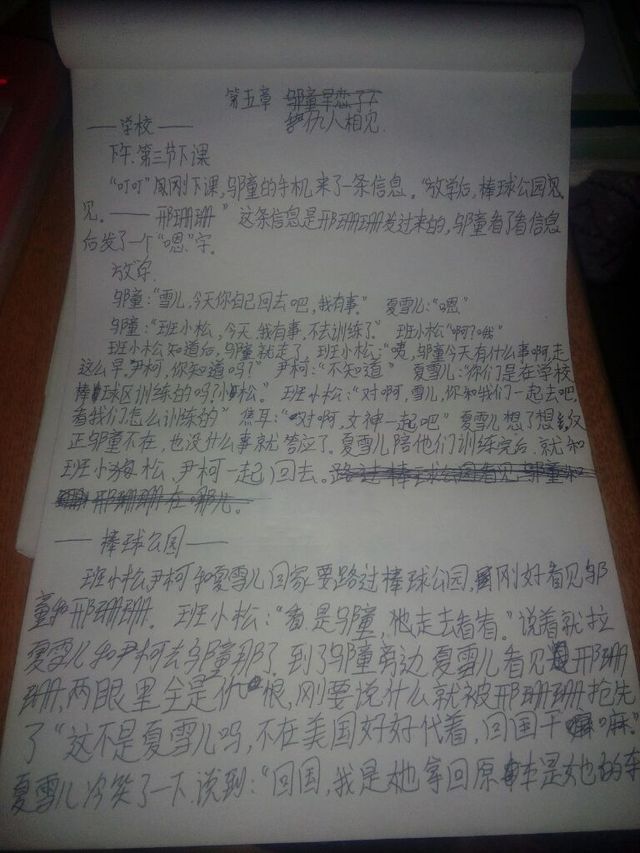 第五章 邬童早恋了
仇人相见
——学校——
下午.第三节下课
“叮叮”刚刚下课,邬童的手机来了一条信息。“放学后,棒球公园见
见。——邢珊珊”这条信息是邢珊珊发过来的,邬童看了看信息
后发了一个“嗯”字。
放学.
邬童:“雪儿,今天你自己回去吧,我有事.” 夏雪儿:“嗯”
邬童:“班小松,今天我有事,不去训练了.” 班小松“啊?哦”
班小松知道后,邬童就走了,班小松:“咦,邬童今天有什么事啊,走
这么早,尹柯,你知道吗?” 尹柯:“不知道” 夏雪儿:“你们是在学校
棒球区训练的吗?小松.” 班小松:“对啊,雪儿,你和我们一起去吧,
看我们怎么训练的” 焦耳:“对啊,女神一起吧” 夏雪儿想了想,反
正邬童不在,也没什么事就答应了。夏雪儿陪他们训练完后,就和
班小松,尹柯一起回去。路过棒球公园看见邬童和
邢珊珊在哪儿。
——棒球公园——
班小松,尹柯和夏雪儿回家要路过棒球公园,刚好看见邬
童和邢珊珊.班小松:“看,是邬童,他走去看看。”说着就拉
夏雪儿和尹柯去邬童那了.到了邬童旁边夏雪儿看见邢珊
珊,两眼里全是仇恨,刚要说什么就被邢珊珊抢先
了“这不是夏雪儿吗,不在美国好好代着,回国干嘛。”
夏雪儿冷笑了一下.说到:“回国,我是她拿回原本是她的车